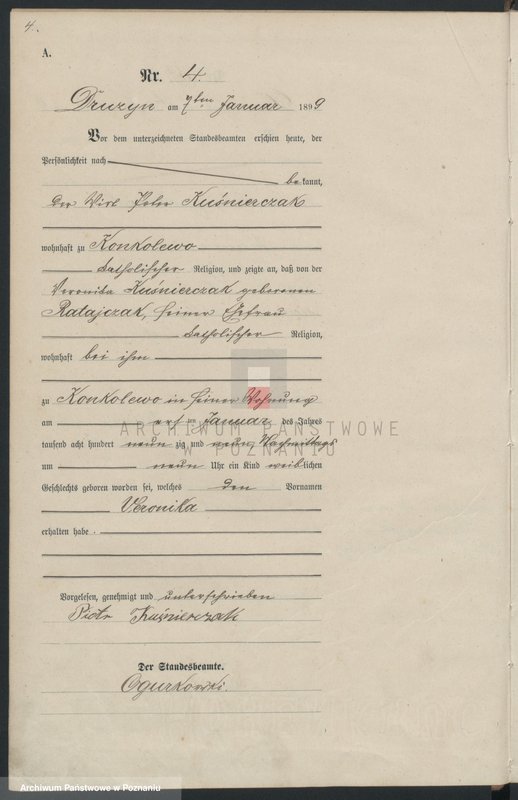 4.
A.
Nr. 4.
Druzyn am 7ten Januar 1899
Vor dem unterzeichneten Standesbeamten erschien heute, der
Persönlichkeit nach
bekannt,
der Wirt Peter Kuśnierczak
wohnhaft zu Konkolewo
katholischer Religion, und zeigte an, daß von der
Veronika Kuśnierczak geborenen
Ratajczak, seiner Ehefrau
katholischer Religion,
wohnhaft bei ihm
zu Konkolewo in seiner Wohnung
am ersten Januar des Jahres
tausend acht hundert neunzig und neun Nachmittags
um neun Uhr ein Kind weiblichen
Geschlechts geboren worden sei, welches den Vornamen
Veronika
erhalten habe.
Vorgelesen, genehmigt und unterschrieben
Piotr Kuśnierczak
Der Standesbeamte.
Ogurkowski.
ARCHIWUM PAŃSTWOWE
W POZNANIU
Archiwum Państwowe w Poznaniu